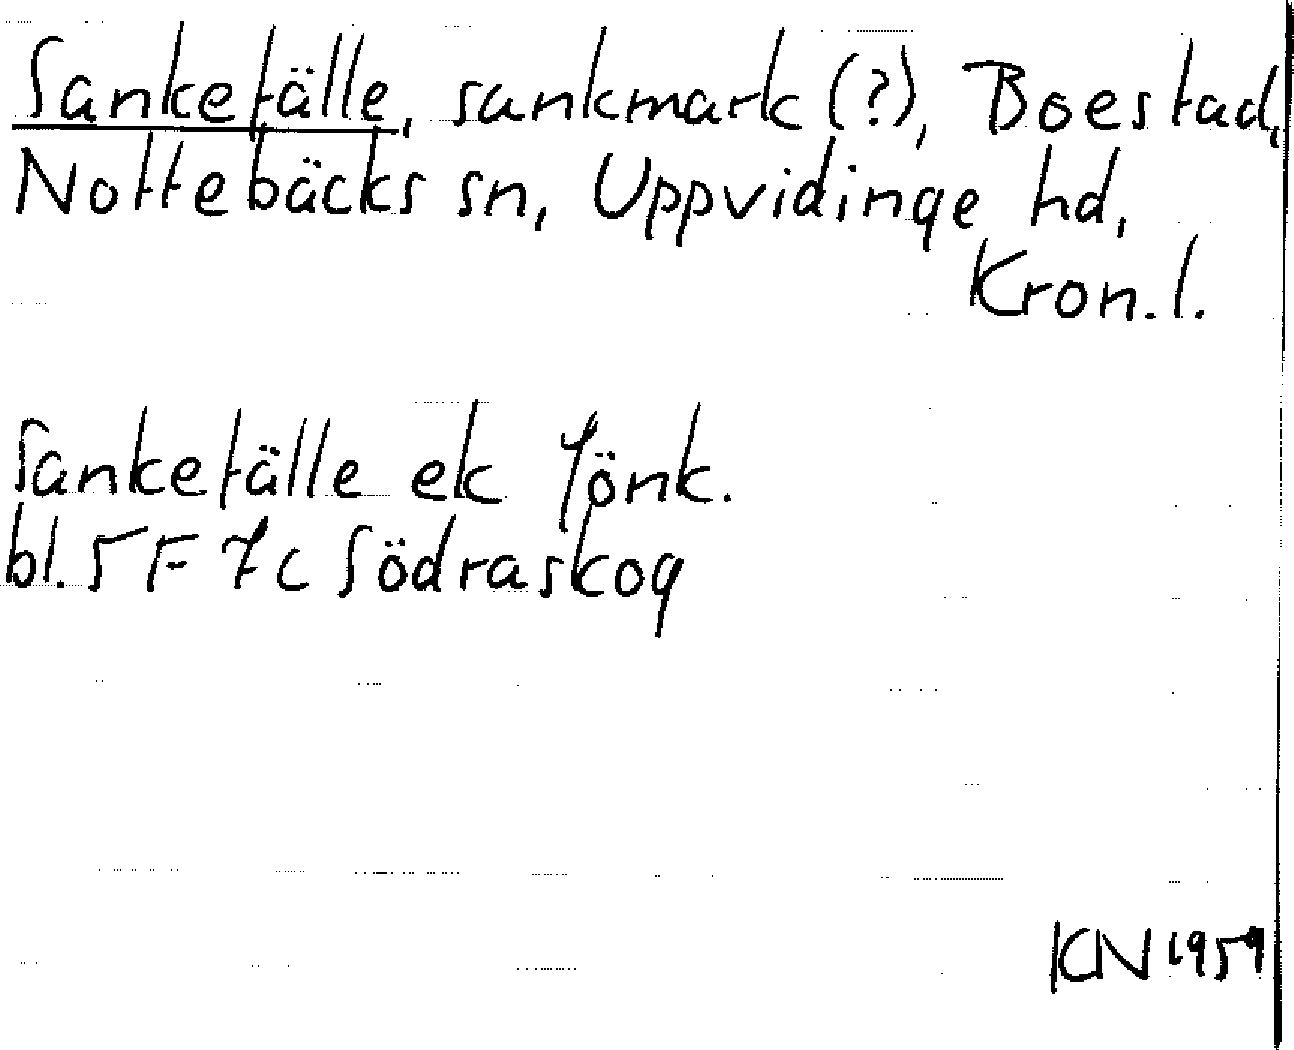 Sankefälle, sankmark (?), Boestad,
Nottebäcks sn, Uppvidinge hd,
Kron.l.
Sankefälle ek Jönk.
bl. 5 F 7c Södraskog
KN 1959